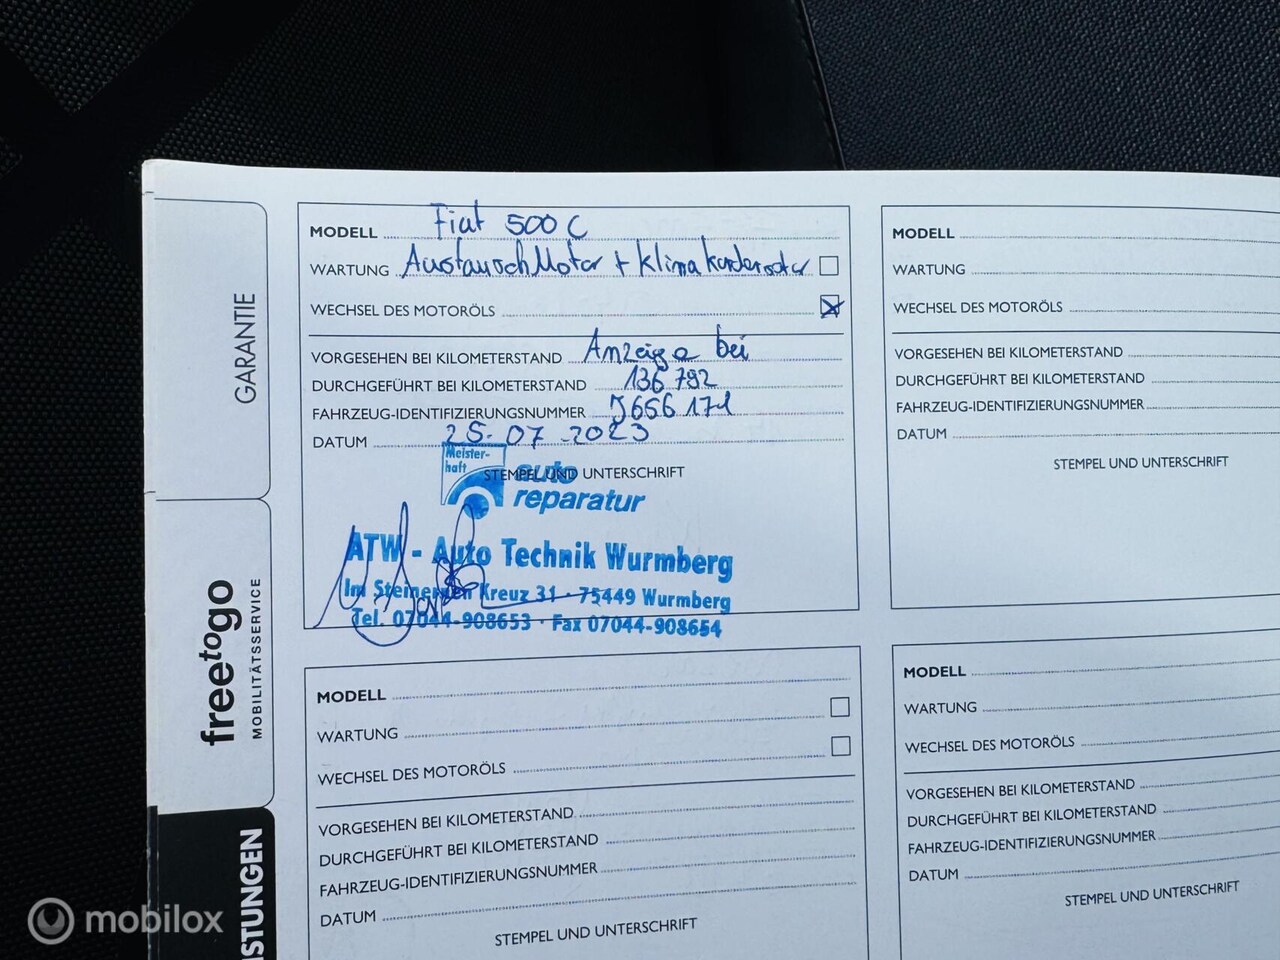 GARANTIE
freetogo
MOBILITÄTSSERVICE
ISTUNGEN
MODELL Fiat 500 C
WARTUNG Austausch Motor + Klimakondensator
WECHSEL DES MOTORÖLS
VORGESEHEN BEI KILOMETERSTAND Anzeige bei
DURCHGEFÜHRT BEI KILOMETERSTAND 136 792
FAHRZEUG-IDENTIFIZIERUNGSNUMMER J656 171
DATUM 25.07.2023
STEMPEL UND UNTERSCHRIFT
Meister-
haft
auto
reparatur
ATW - Auto Technik Wurmberg
Im Steinernen Kreuz 31 · 75449 Wurmberg
Tel. 07044-908653 · Fax 07044-908654
MODELL
WARTUNG
WECHSEL DES MOTORÖLS
VORGESEHEN BEI KILOMETERSTAND
DURCHGEFÜHRT BEI KILOMETERSTAND
FAHRZEUG-IDENTIFIZIERUNGSNUMMER
DATUM
STEMPEL UND UNTERSCHRIFT
MODELL
WARTUNG
WECHSEL DES MOTORÖLS
VORGESEHEN BEI KILOMETERSTAND
DURCHGEFÜHRT BEI KILOMETERSTAND
FAHRZEUG-IDENTIFIZIERUNGSNUMMER
DATUM
STEMPEL UND UNTERSCHRIFT
MODELL
WARTUNG
WECHSEL DES MOTORÖLS
VORGESEHEN BEI KILOMETERSTAND
DURCHGEFÜHRT BEI KILOMETERSTAND
FAHRZEUG-IDENTIFIZIERUNGSNUMMER
DATUM
STEMPEL UND UNTERSCHRIFT
mobilox